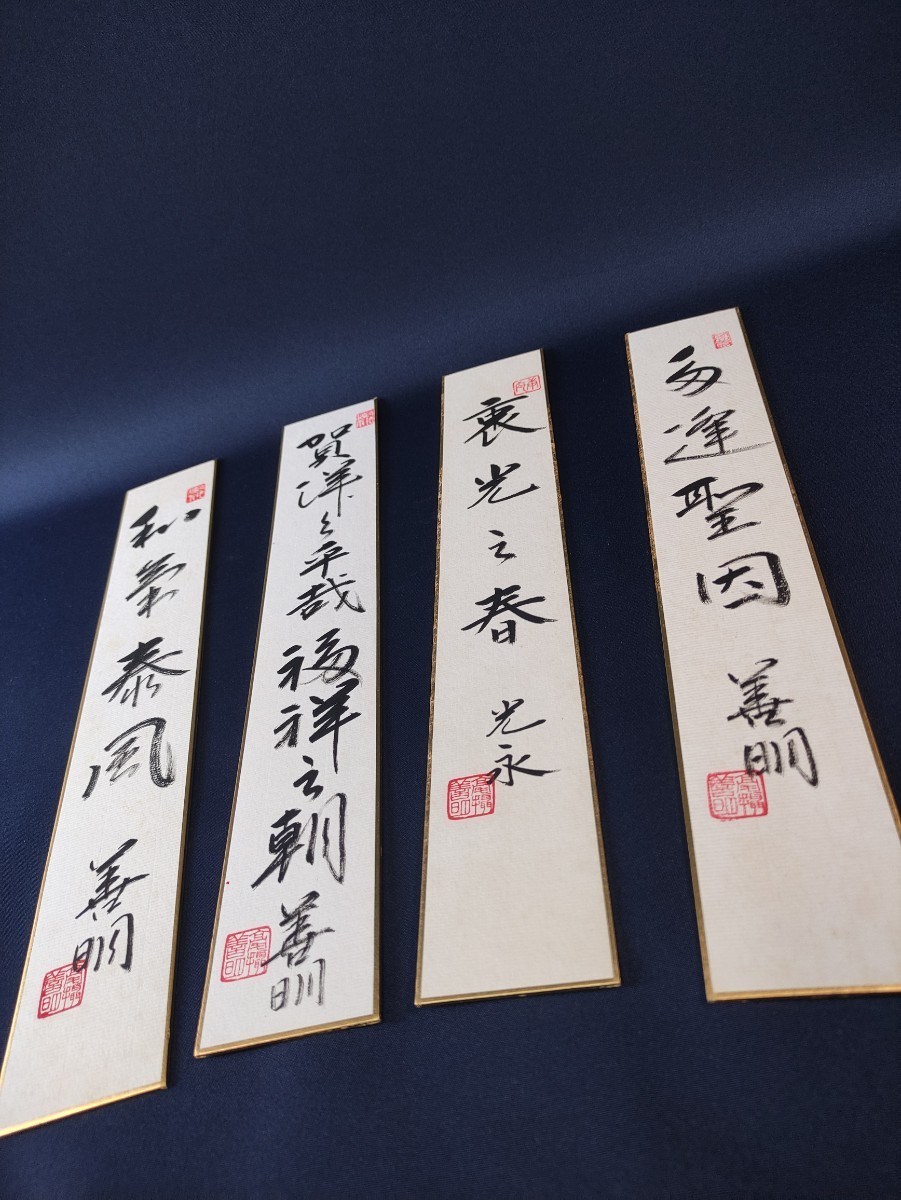 多逢聖因
善明
光之春
光永
賀洋々平哉福祥之朝
善明
和氣泰風
善明